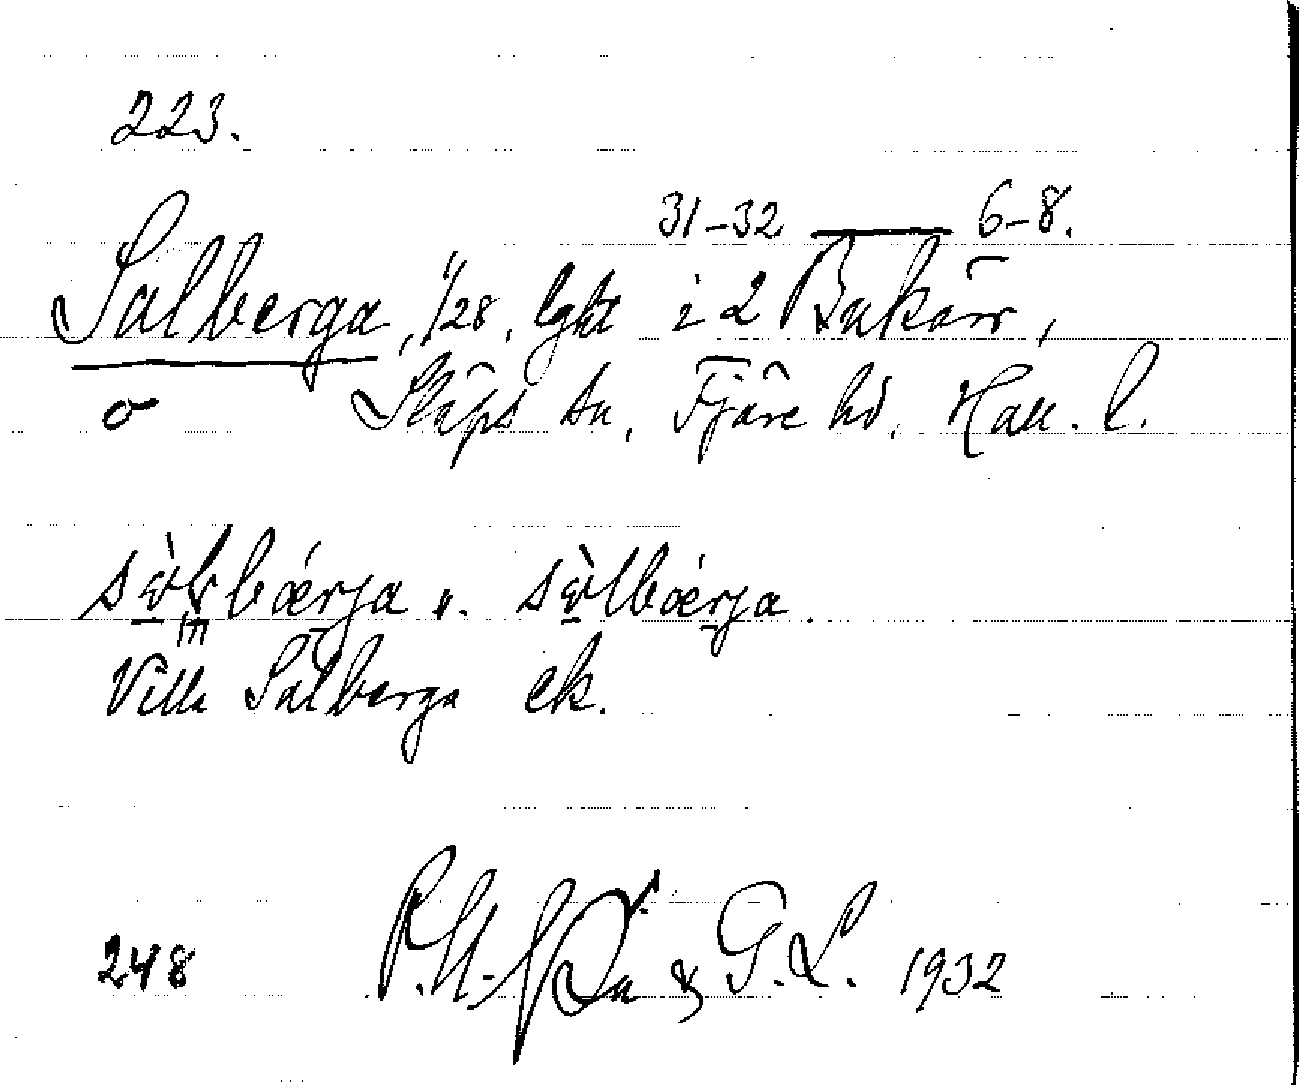 223.
31-32 — 6-8.
Salberga, 1/28, lght i 2 Bukärr,
Släps sn, Fjäre hd, Hall. l.
sɷ̀lbǽrja l. sɷ̀lbǽrja.
Villa Salberga ek.
248 & G. L. 1932